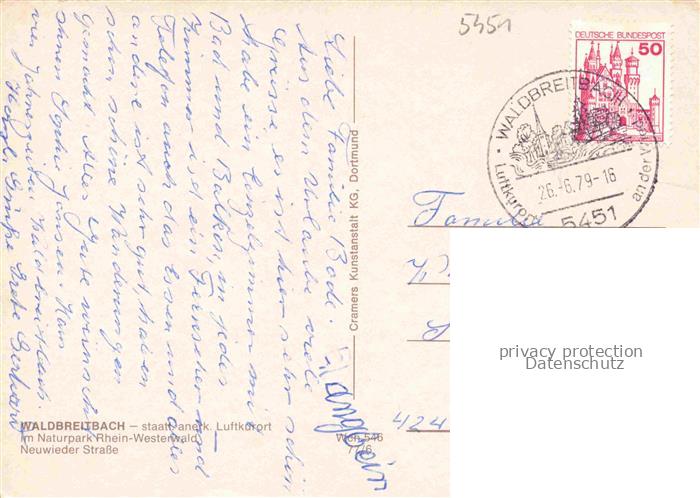 5451
DEUTSCHE BUNDESPOST
50
WALDBREITBACH
26.-6.79-16
Luftkurort
an der W
5451
Liebe Familie Bode.
Aus dem Urlaube viele
Grüsse, es ist hier sehr schön
Habe ein Einzelzimmer mit
Bad und Balkon, in jedes
Zimmer ist ein Fernseher und
Telefon auch das Essen und alles
andere ist sehr gut, haben
schon schöne Wanderungen
gemacht. Alles Gute wünscht
Ihnen
vier Jahreszeiten Waldbreitbach.
Herzl. Grüße
Cramers Kunstanstalt KG, Dortmund
Familie
424
WALDBREITBACH – staatl. anerk. Luftkurort
im Naturpark Rhein-Westerwald
Neuwieder Straße
privacy protection
Datenschutz